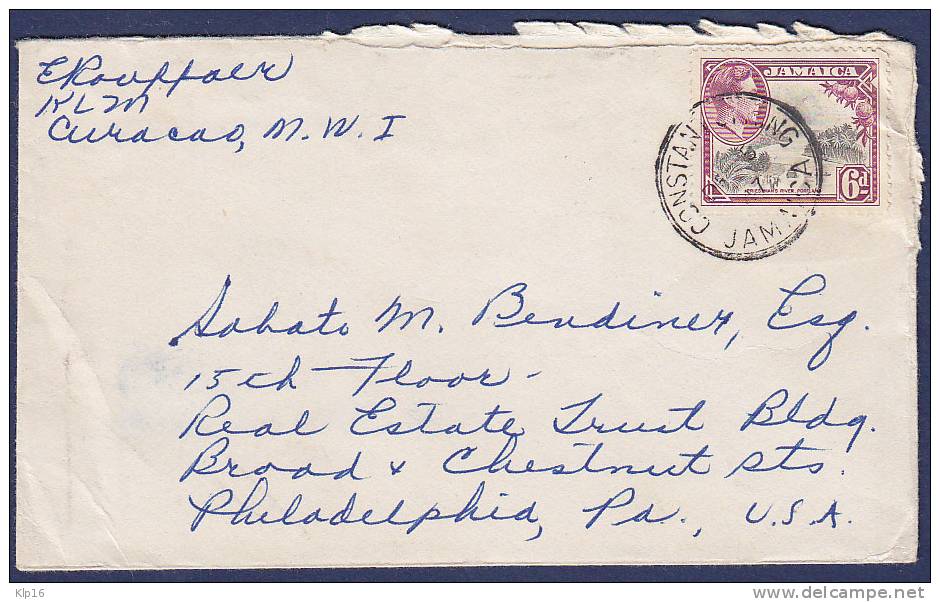 KLM
Curacao, N.W.I
JAMAICA
6d
CONSTANT SPRING
JAMAICA
Sabato M. Bendiner, Esq.
15th Floor-
Real Estate Trust Bldg.
Broad & Chestnut Sts.
Philadelphia, Pa., U.S.A.
Klp16
delcampe.net